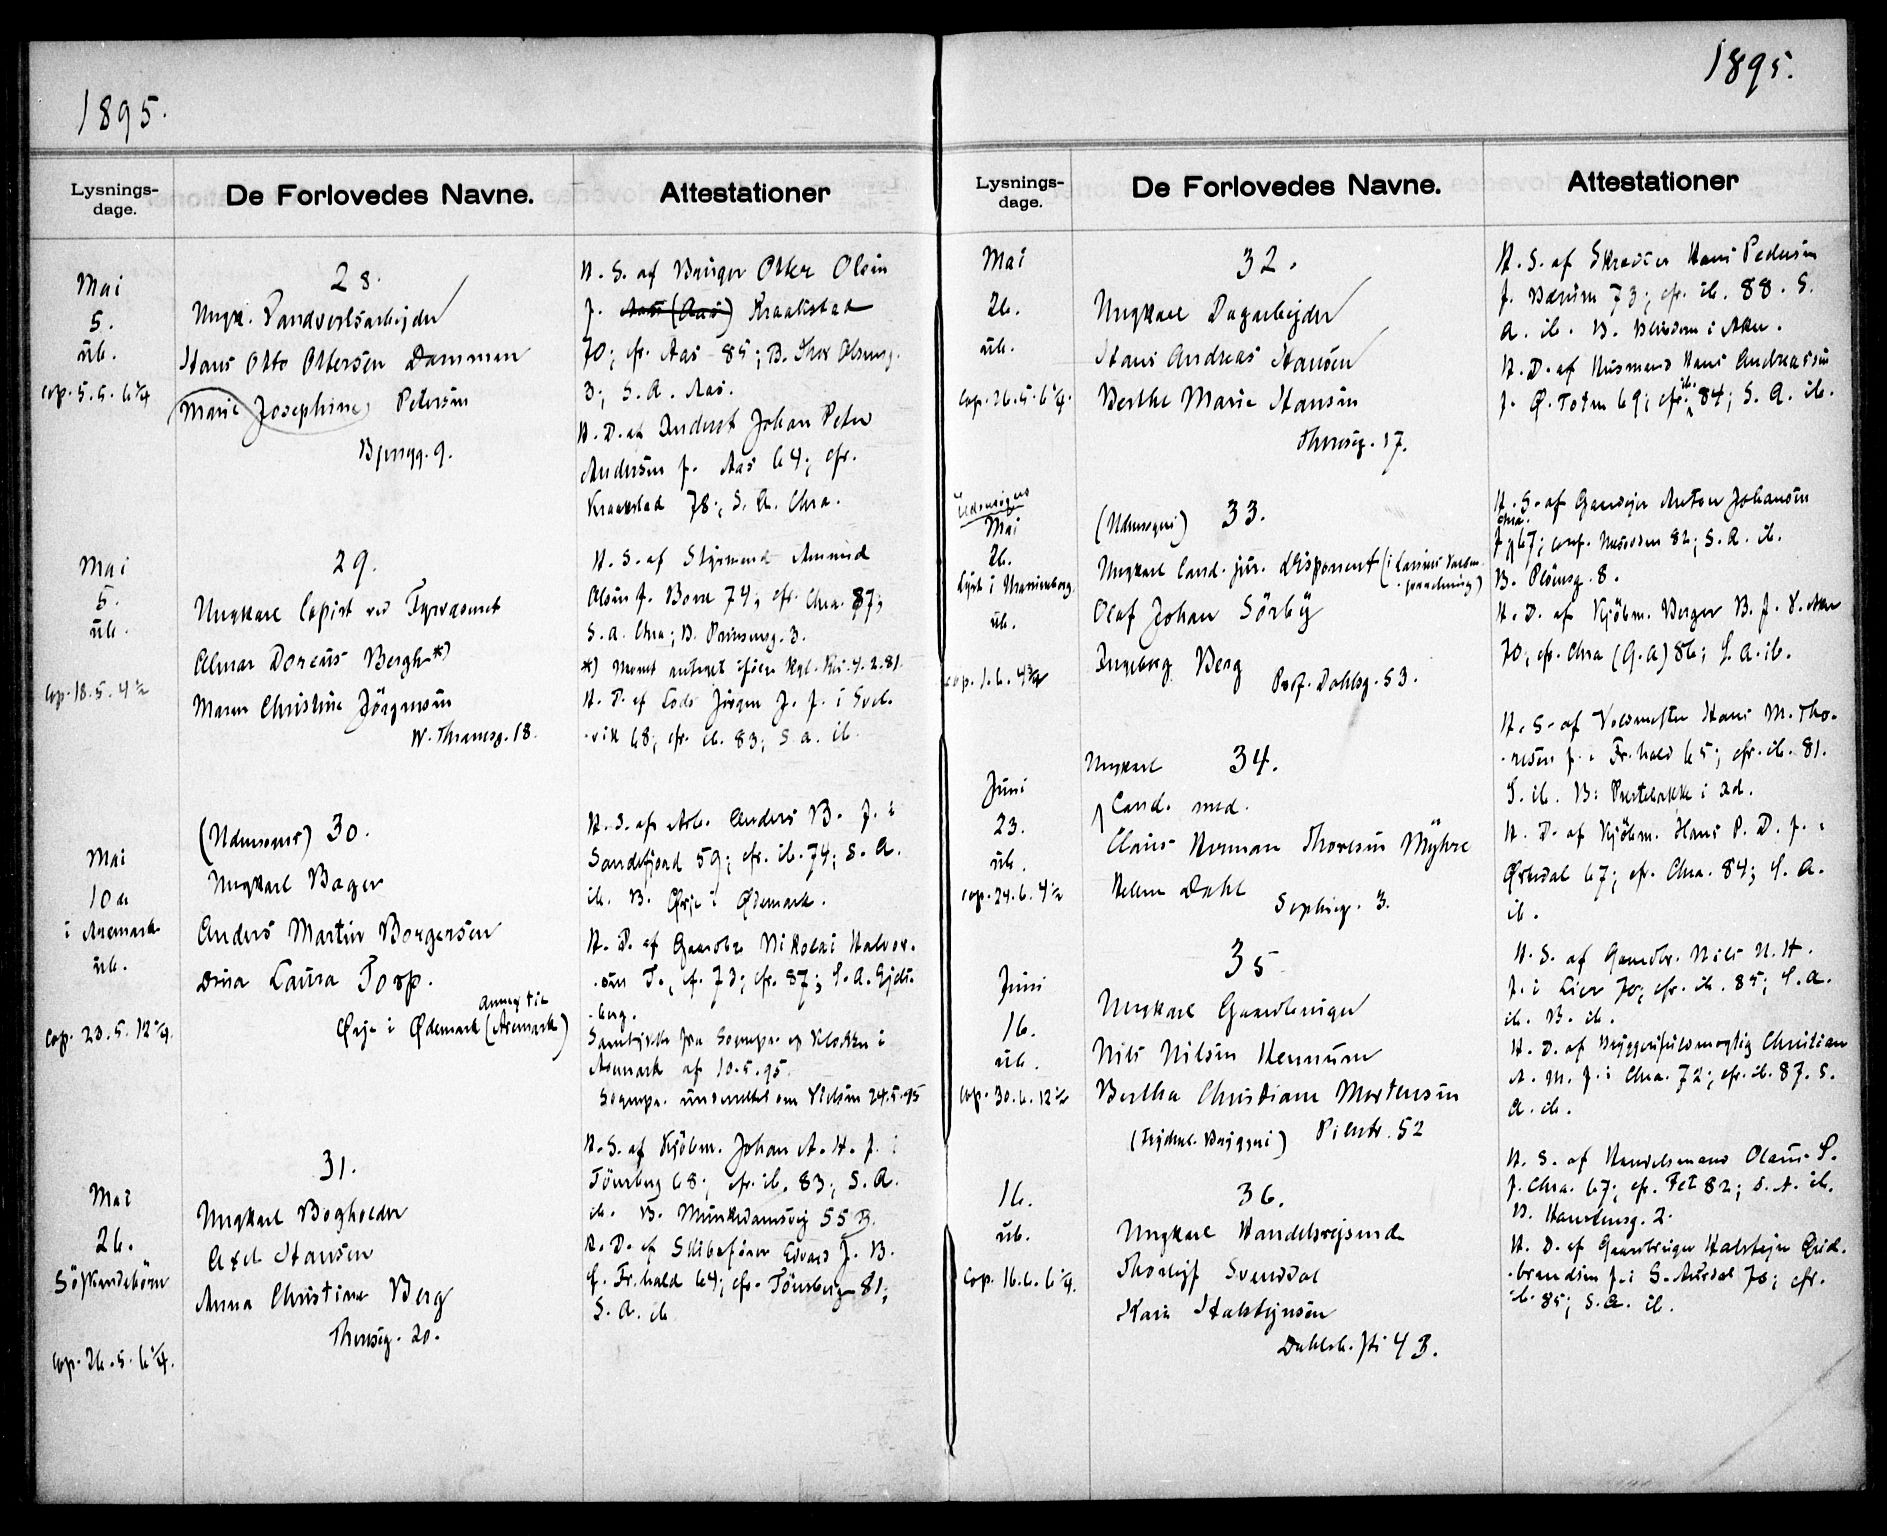 1895.
Lysnings-
dage.
De Forlovedes Navne.
Attestationer
Mai
5.
üb.
cop. 5.5. 6 1/4
28.
Ungk.
Hans Otto Ottersen Dammen
Marie Josephine Petersen
9.
H. S. af Bruger Otter Olsen
f. Aas (Aas) Kraakstad
70; cfr. Aas 85; B.
3; S. A. Aas.
H. D. af Inderst Johan Peter
Andersen f. Aas 64; cfr.
Kraakstad 78; S. A. Chra.
Mai
5.
üb.
cop. 18.5. 4 1/2
29.
Ungkarl Copist ved Fyrvæsenet
Elmar Doreus Bergh *)
Maren Christine Jörgensen
W. Thranesg. 18.
H. S. af Styrmand Amund
Olsen f. Borre 74; cfr. Chra. 87;
S. A. Chra; B. Prinsensg. 3.
*) Navnet antaget ifölge Kgl. 4.2.81.
H. D. af Lods Jörgen J. f. i Svel-
-vik 68; cfr. ib. 83; S. A. ib.
Mai
10de
i Aremark
üb.
cop. 23.5. 12 1/4.
(Udensogns) 30.
Ungkarl Bager
Anders Martin Borgersen
Dina Laura Torp.
Ørje i Ødemark (Annex til Aremark)
H. S. af Arb. Anders B. f. i
Sandefjord 59; cfr. ib. 74; S. A.
ib. B. Ørje i Ødemark.
H. D. af Gaardbr. Nikolai Halvor-
-sen T., f. 73; cfr. 87; S. A. Ejds-
-berg.
Samtykke fra Sognepr. og Klokker i
Aremark af 10.5.95.
Sognepr. underrettet om Vielsen 24.5.95
Mai
26.
Söskendebörn
cop. 26.5. 6 1/4.
31.
Ungkarl Bogholder
Axel Hansen
Anna Christine Berg
Theresg. 20.
H. S. af Kjöbm. Johan A. H. f. i
Tönsberg 68; cfr. ib. 83; S. A.
ib. B. Munkedamsvej 55 B.
H. D. af Skibsförer Edvard J. B.
f. Fr.hald 64; cfr. Tönsberg 81;
S. A. ib
1895.
Lysnings-
dage.
De Forlovedes Navne.
Attestationer
Mai
26.
üb.
cop. 26.5. 6 1/4.
32.
Ungkarl Dagarbejder
Hans Andreas Hansen
Berthe Marie Hansen
Theresg. 17.
H. S. af Skrædder Hans Pedersen
f. Bærum 73; cfr. ib. 88. S.
A. ib. B. Blindern i Aker.
H. D. af Husmand Hans Andreassen
f. Ø. Toten 69; cfr. ib. 84; S. A. ib.
Udensogns
Mai
26.
Lyst i Uranienborg
üb.
cop. 1.6. 4 3/4
(Udensogns) 33.
Ungkarl Cand. jur. Disponent
Olaf Johan Sörby
Ingeborg Berg
Prof. Dahlsg. 53.
H. S. af Gaardejer Anton Johansen
f. Chra. 67; conf. Nesodden 82; S. A. ib.
B. Pløensg. 8.
H. D. af Kjöbm. Berger B. f. V. Aker
70; cfr. Chra (G. A) 86; S. A. ib.
Juni
23.
üb.
cop. 24.6. 4 1/2
34.
Ungkarl
Cand. med.
Claus Herman Thoresen Myhre
Helene Dahl
Sophieg. 3.
H. S. af Voldmester Hans M. Tho-
-resen f. i Fr.hald 65; cfr. ib. 81.
S. ib. B: Prestebakke i Id.
H. D. af Kjöbm. Hans P. D. f. i
Ørkedal 67; cfr. Chra. 84; S. A.
ib.
Juni
16.
üb.
cop. 30.6. 12 1/2
35
Ungkarl Gaardbruger
Nils Nilsen Hennum
Bertha Christiane Mortensen
(Frydenl. Bryggeri) Pilestr. 52
H. S. af Gaardbr. Nils N. H.
f. i Lier 70; cfr. ib. 85; S. A.
ib. B. ib.
H. D. af Bryggerifuldmægtig Christian
A. M. f. i Chra. 72; cfr. ib. 87. S.
A. ib.
16.
üb.
cop. 16.6. 6 1/4.
36.
Ungkarl Handelsrejsende
Thorleif Svenddal
Kari Halstejnsen
4 B.
H. S. af Handelsmand Olaus S.
f. Chra. 67; cfr. Fet 82; S. A. ib.
B. Hausmansg. 2.
H. D. af Gaardbruger Halstejn Gud-
-brandsen f. i S. Aurdal 70; cfr.
ib. 85; S. A. ib.